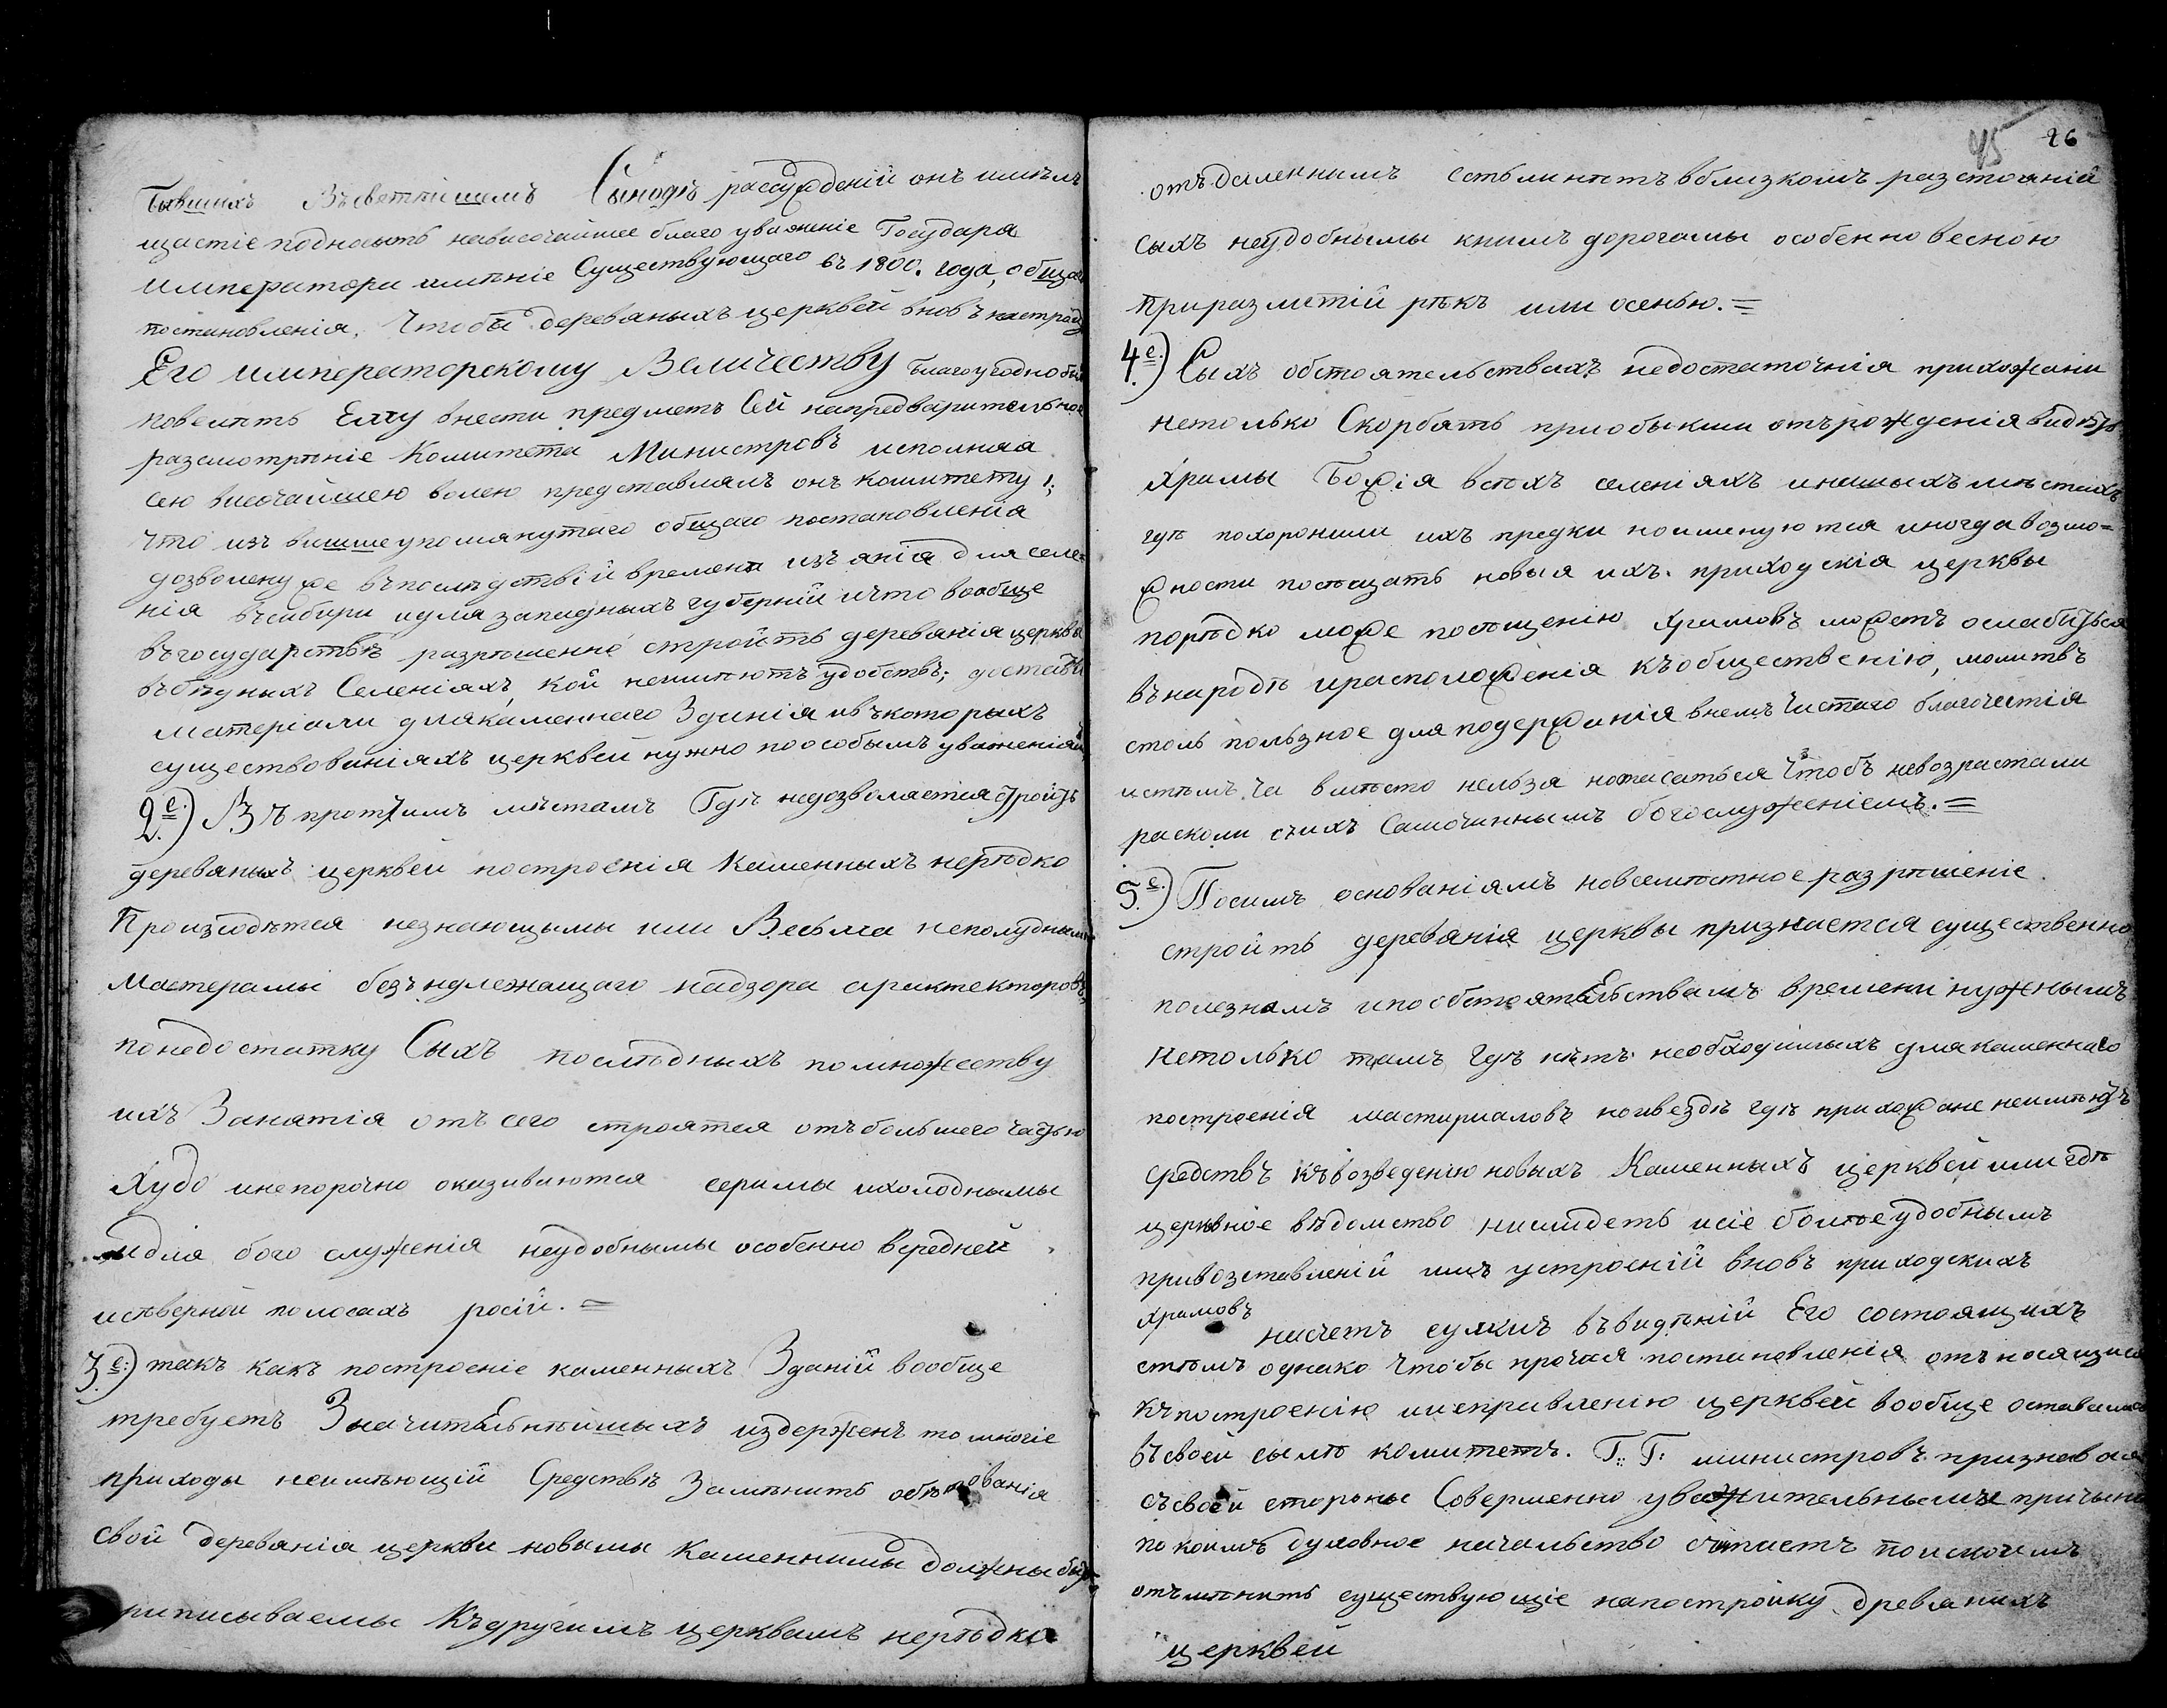 бывшихъ Въсветѣйшемъ Сѵнодѣ рассужденій онъ имѣлъ
щастіе подносить навысочайшее благо уваженіе Государя
императора имѣніе Существующаго съ 1800. года, общаго
постановленія. Чтобы дереваныхъ церквей вновъ нестроить
Его императорскому Величеству благоугодно было
повелѣть Ему внести предметъ Сей напредварительное
разсмотрѣніе Комитета Министровъ исполняя
сею высочайшею волею представлялъ онъ комитету 1;
что изъ вышшеупомянутаго общаго постановленія
дозволену же въпослѣдствій времени изъятія для селе=
нія въсибири идля западныхъ губерній ичто вообще
въгосударствѣ разрѣшенно строить деревянія церквы
въбѣдныхъ Селеніяхъ, кой неимѣютъ удобствъ; доставить
матеріали длякаменнаго Зданія ивъкоторыхъ
существованіяхъ церквей нужно поособымъ уваженіямъ
2е.) Въ протчимъ мѣстамъ Гдѣ недозволяется строить
дереваныхъ церквей построенія Каменныхъ нерѣдко
Произходѣтся незнающымы или Весьма неполудными
Мастерамы безъ надлежащаго надзора архитекторовъ
понедостатку Сыхъ послѣдныхъ помножеству
ихъ Занатія отъ сего строятся отъ большего частью
Худо инепорочно оказываются серимы ихолоднымы
идля бого служенія неудобнымы особенно вередней
исѣверной полосахъ росій. =
3е.) такъ какъ построеніе каменныхъ Зданій вообще
требуетъ Значительнѣйшыхъ издерженъ то многіе
приходы неимѣющій Средствъ Замѣнить обѣтованія
свой деревянія церкви новымы Каменнимы должны быть
риписываемы Къдругимъ церквамъ нерѣдко
45 26
отъдаленнимъ естьлинѣтъ вблизкомъ разстояній
сыхъ неудобнымы книмъ дорогамы особенно весною
приразлитій рѣкъ или осенью. =
4е.) Сыхъ обстоятельствахъ недостаточнія прихожани
нетолько Скорбятъ приобыкши отърожденія видѣть
Храмы Божія всѣхъ селеніяхъ инашыхъ мѣстахъ
гдѣ похоронили ихъ предки ноименуются иногда возмо=
жности посѣщать новыя ихъ приходскія церквы
порѣдко може посѣщенію Храмовъ можетъ ослабиться
въ народѣ ирасположенія къобщественію, молитвъ
столь пользное для подержанія внемъ Чистаго благочестія
исѣмъ ча вмѣсто нельзя нотасаться чтобъ невозрастали
расколи сихъ Самочиннымъ богослуженіемъ. =
5е.) Посимъ основаніямъ новсемѣстное разрѣшеніе
строить деревянія церквы признается существенно
полезнамъ ипообстоятЕльствамъ времени нужнымъ
Нетолько тамъ гдѣ нѣтъ необходимыхъ длякаменнаго
построенія мастириаловъ ноивездѣ гдѣ прихожане неимѣютъ
средствъ къвозведенію новыхъ Каменныхъ церквей или гдѣ
церквное вѣдомство нисидетъ исіе болѣе удобнымъ
привозставленій илъ устроеній вновъ приходскихъ
Храмовъ насчетъ сумкиъ въвидѣній Его состоящихъ
стѣмъ однако чтобы прочая постановленія отъносящися
къпостроенію иисправленію церквей вообще оставались
въсвоей сылѣ комитетъ. Г.. Г. министровъ признавая
съсвоей стороны Совершенно уважительнымы причыни
покоимъ духовное начальство считаетъ поискомъ
отъмѣнить существующіе напостройку древанихъ
церквей